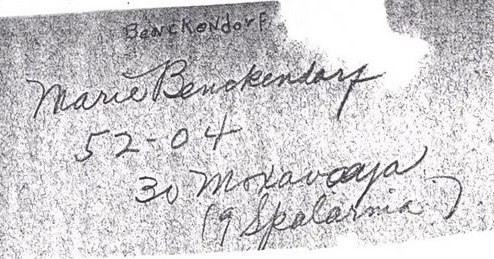 Benckendorf
Marie Benckendorf
52-04
30 Moxavoaja
(9 Spalarnia)